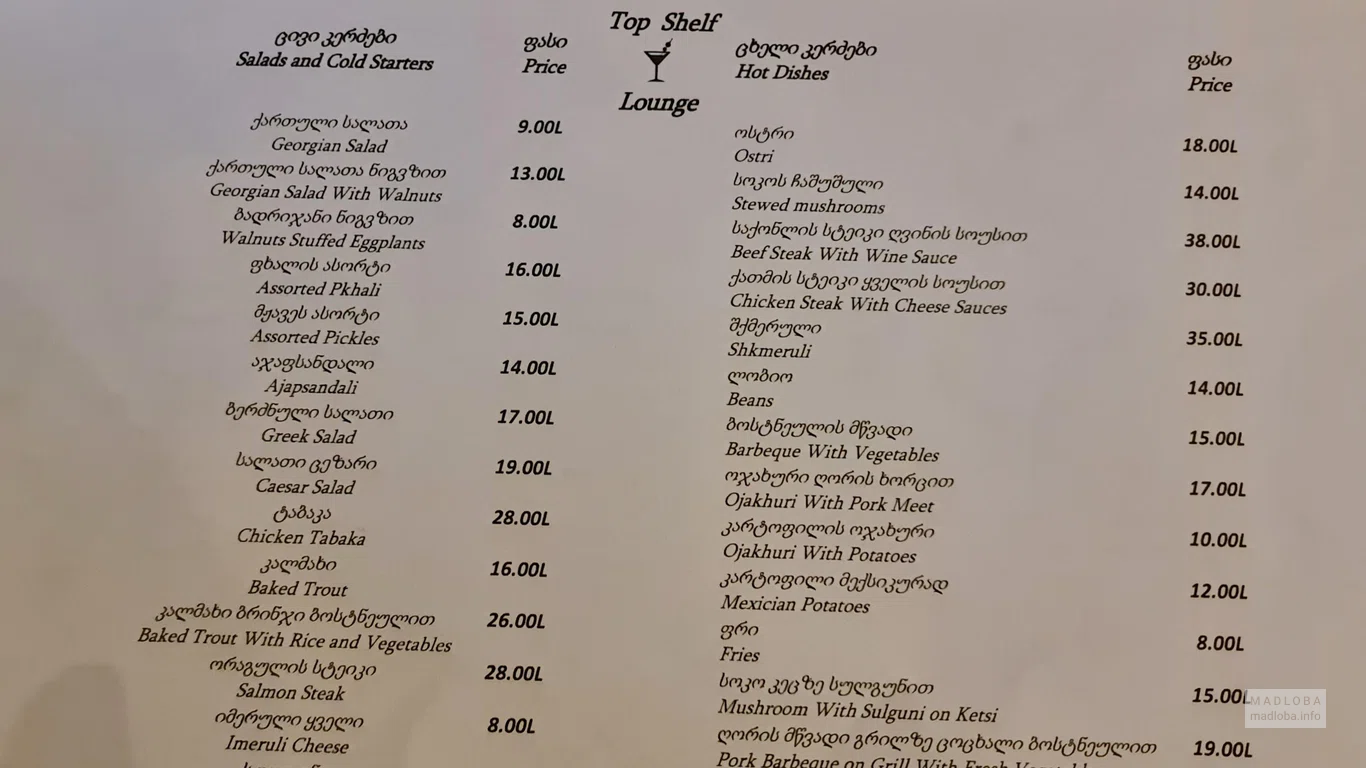 Top Shelf
Lounge
ცივი კერძები
Salads and Cold Starters
ფასი
Price
ქართული სალათა
Georgian Salad
9.00L
ქართული სალათა ნიგვზით
Georgian Salad With Walnuts
13.00L
ბადრიჯანი ნიგვზით
Walnuts Stuffed Eggplants
8.00L
ფხალის ასორტი
Assorted Pkhali
16.00L
მჟავეს ასორტი
Assorted Pickles
15.00L
აჯაფსანდალი
Ajapsandali
14.00L
ბერძნული სალათი
Greek Salad
17.00L
სალათი ცეზარი
Caesar Salad
19.00L
ტაბაკა
Chicken Tabaka
28.00L
კალმახი
Baked Trout
16.00L
კალმახი ბრინჯი ბოსტნეულით
Baked Trout With Rice and Vegetables
26.00L
ორაგულის სტეიკი
Salmon Steak
28.00L
იმერული ყველი
Imeruli Cheese
8.00L
ცხელი კერძები
Hot Dishes
ფასი
Price
ოსტრი
Ostri
18.00L
სოკოს ჩაშუშული
Stewed mushrooms
14.00L
საქონლის სტეიკი ღვინის სოუსით
Beef Steak With Wine Sauce
38.00L
ქათმის სტეიკი ყველის სოუსით
Chicken Steak With Cheese Sauces
30.00L
შქმერული
Shkmeruli
35.00L
ლობიო
Beans
14.00L
ბოსტნეულის მწვადი
Barbeque With Vegetables
15.00L
ოჯახური ღორის ხორცით
Ojakhuri With Pork Meet
17.00L
კარტოფილის ოჯახური
Ojakhuri With Potatoes
10.00L
კარტოფილი მექსიკურად
Mexician Potatoes
12.00L
ფრი
Fries
8.00L
სოკო კეცზე სულგუნით
Mushroom With Sulguni on Ketsi
15.00L
ღორის მწვადი გრილზე ცოცხალი ბოსტნეულით
Pork Barbeque on Grill With Fresh
19.00L
MADLOBA
madloba.info